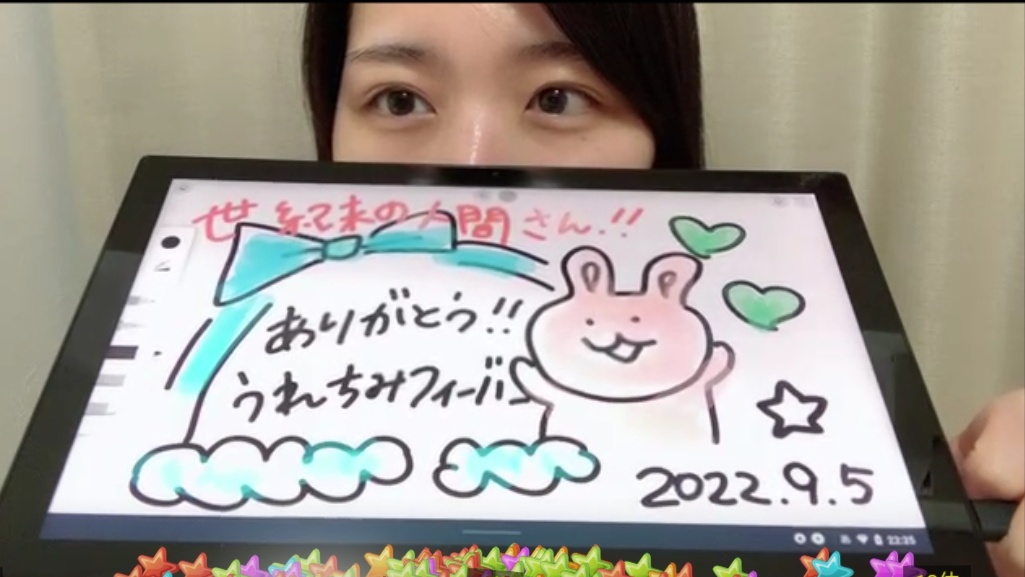 世紀末の人間さん!!
ありがとう!!
うれちみフィーバー
2022.9.5
22:25